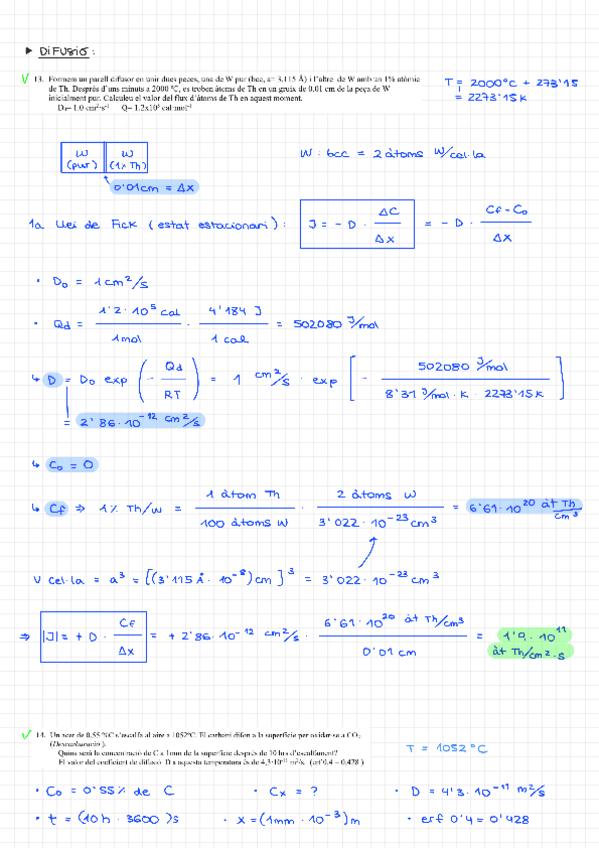 ▶ DiFUSió :
✓ 13. Formem un parell difusor en unir dues peces, una de W pur (bcc, a= 3,115 Å) i l'altre de W amb un 1% atòmic
de Th. Després d'uns minuts a 2000 °C, es troben àtoms de Th en un gruix de 0.01 cm de la peça de W
inicialment pur. Calculeu el valor del flux d'àtoms de Th en aquest moment.
D₀= 1.0 cm²·s⁻¹ Q= 1.2x10⁵ cal·mol⁻¹
T = 2000°C + 273'15
= 2273'15 K
W (pur) W (1% Th)
0'01cm = Δx
W : bcc = 2 àtoms W/cel·la
1a Llei de Fick (estat estacionari) : J = - D · ΔC / Δx = - D · Cf - C₀ / Δx
· D₀ = 1 cm²/s
· Qd = 1'2 · 10⁵ cal / 1mol · 4'184 J / 1 cal = 502080 J/mol
↳ D = D₀ exp (- Qd / RT) = 1 cm²/s · exp [ - 502080 J/mol / 8'31 J/mol · K · 2273'15K ]
= 2'86 · 10⁻¹² cm²/s
↳ C₀ = 0
↳ Cf ⇒ 1% Th/W = 1 àtom Th / 100 àtoms W · 2 àtoms W / 3'022 · 10⁻²³ cm³ = 6'61 · 10²⁰ àt Th / cm³
V cel·la = a³ = [(3'115 Å · 10⁻⁸) cm ]³ = 3'022 · 10⁻²³ cm³
⇒ |J| = + D · Cf / Δx = + 2'86 · 10⁻¹² cm²/s · 6'61 · 10²⁰ àt Th/cm³ / 0'01 cm = 1'9 · 10¹¹ àt Th/cm² · s
✓ 14. Un acer de 0.55 %C s'escalfa al aire a 1052°C. El carboni difon a la superfície per oxidar-se a CO₂
(Descarburació ).
Quina serà la concentració de C a 1mm de la superfície després de 10 hrs d'escalfament?
El valor del coeficient de difusió D a aquesta temperatura és de 4,3·10⁻¹¹ m²/s. (erf 0.4 = 0,428 )
T = 1052 °C
· C₀ = 0'55% de C · Cx = ? · D = 4'3 · 10⁻¹¹ m²/s
· t = (10 h · 3600 )s · x = (1mm · 10⁻³) m · erf 0'4 = 0'428